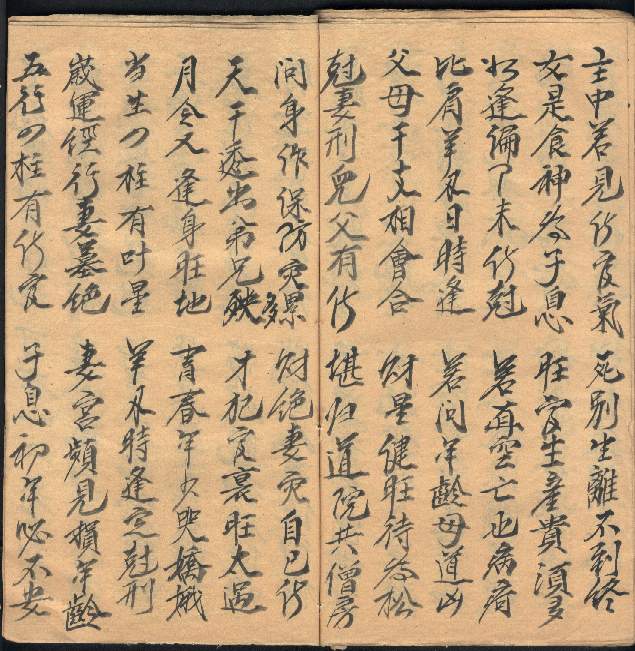 主中若見伤官氣　死别生離不到終
女是食神為子息　旺官生產貴須多
如逢偏　未伤尅　若再空亡也病
比肩羊刃日時逢　若問年齡母道凶
父母干支相會合　财星健旺待為松
尅妻刑兒父有伤　堪归道院共僧房
问身作保防　累　财绝妻　自己伤
天干透出弟兄殃　才犯官裏旺太過
月令又逢身旺地　青春年少哭嬌娥
当生四柱有叶星　羊刃時逢定尅刑
歲運經行妻墓绝　妻宮頻見損年齡
五行四柱有伤官　子息初年必不安